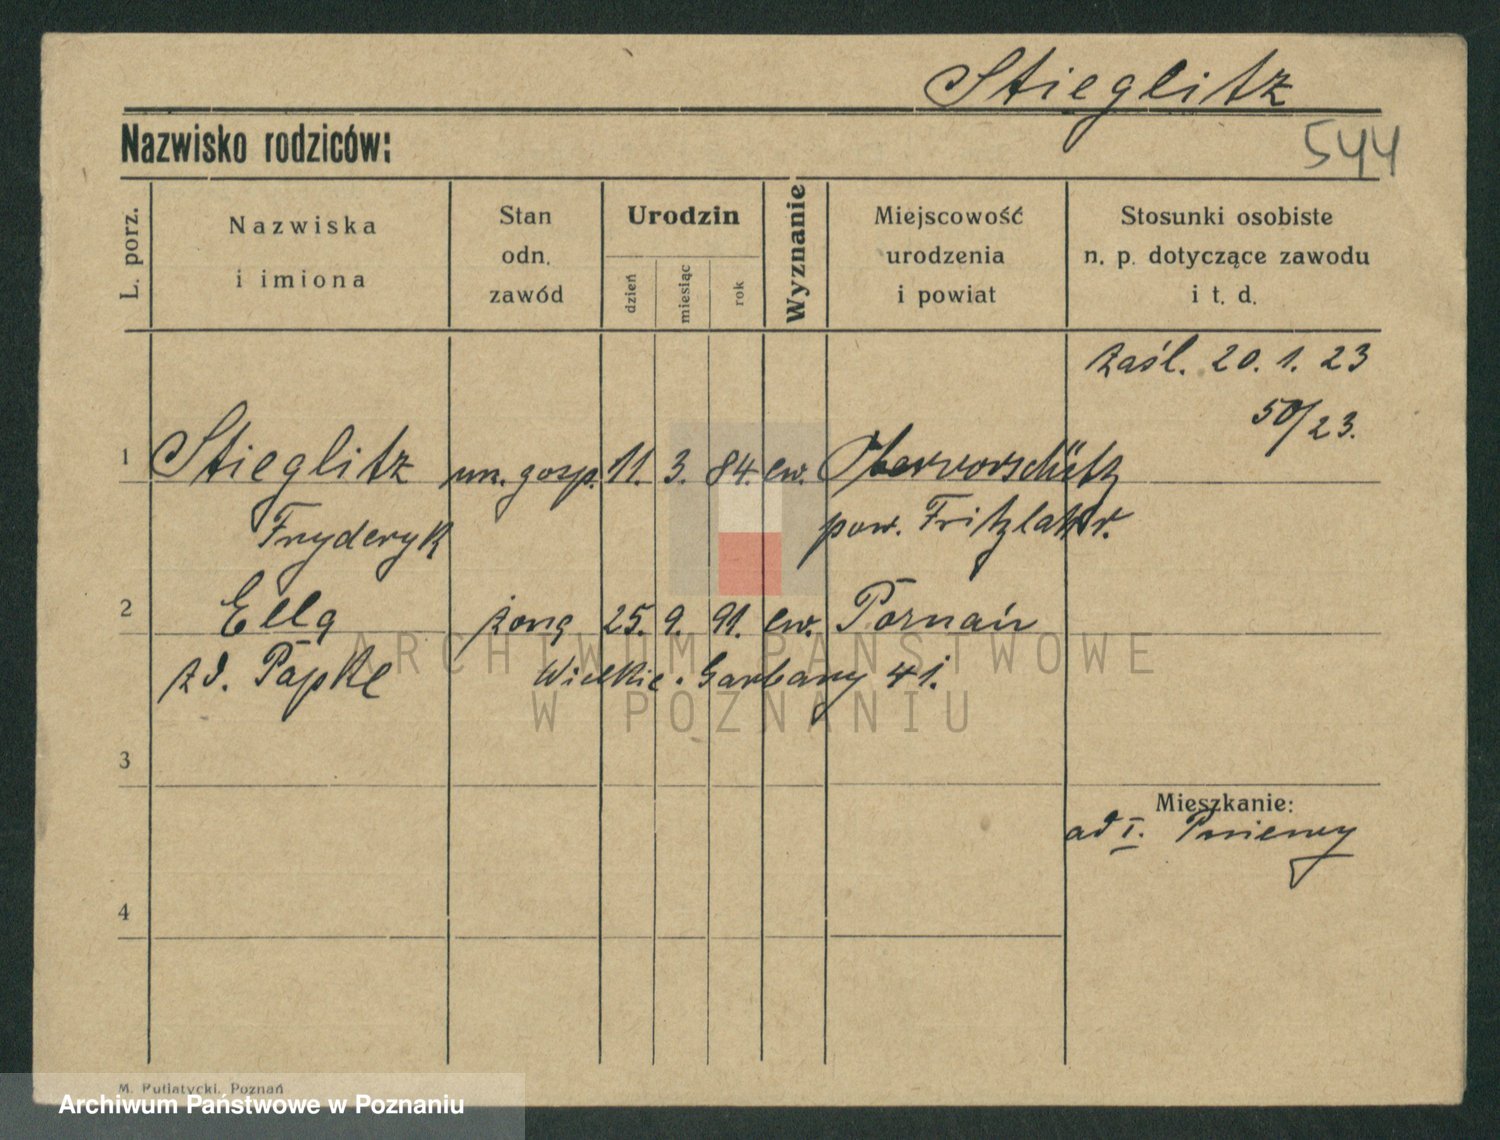 Stieglitz
Nazwisko rodziców:
544
L. porz.
Nazwiska
i imiona
Stan
odn.
zawód
Urodzin
dzień
miesiąc
rok
Wyznanie
Miejscowość
urodzenia
i powiat
Stosunki osobiste
n. p. dotyczące zawodu
i t. d.
zaśl. 20. 1. 23
50/23.
1 Stieglitz urz. gosp. 11. 3. 84. ew. Obervorschütz
Fryderyk pow. Fritzlar
2 Ella żona 25. 9. 91. ew. Poznań
zd. Papke Wielkie Garbary 41.
3
Mieszkanie:
ad I. Pniewy
4
M. Putiatycki, Poznań
ARCHIWUM PAŃSTWOWE
W POZNANIU
Archiwum Państwowe w Poznaniu